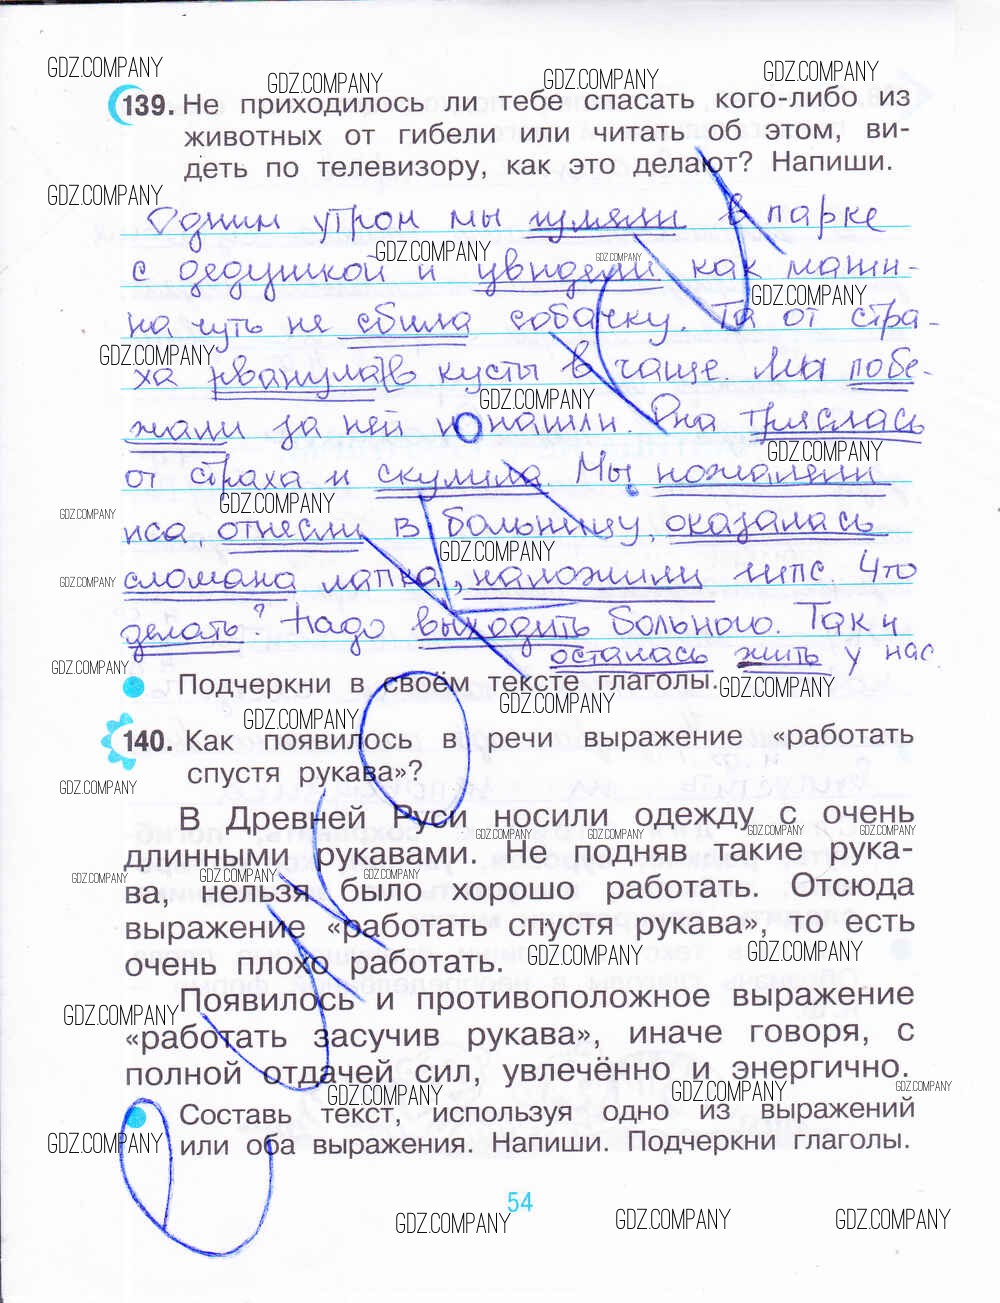 GDZ.COMPANY
GDZ.COMPANY GDZ.COMPANY GDZ.COMPANY
139. Не приходилось ли тебе спасать кого-либо из
животных от гибели или читать об этом, ви-
деть по телевизору, как это делают? Напиши.
GDZ.COMPANY
Одним утром мы гуляли в парке
GDZ.COMPANY GDZ.COMPANY
с дедушкой и увидели как маши-
GDZ.COMPANY
на чуть не сбила собачку. Та от стра-
GDZ.COMPANY
ха рванула в кусты в чаще. Мы побе-
GDZ.COMPANY
жали за ней и нашли. Она тряслась
GDZ.COMPANY
от страха и скулила. Мы пожалели
GDZ.COMPANY
GDZ.COMPANY
пса, отнесли в больницу, оказалась
GDZ.COMPANY
GDZ.COMPANY
сломана лапка, наложили гипс. Что
делать? Надо выходить больного. Так и
осталась жить у нас
GDZ.COMPANY
Подчеркни в своём тексте глаголы.
GDZ.COMPANY
GDZ.COMPANY
GDZ.COMPANY
140. Как появилось в речи выражение «работать
спустя рукава»?
GDZ.COMPANY
В Древней Руси носили одежду с очень
GDZ.COMPANY GDZ.COMPANY GDZ.COMPANY GDZ.COMPANY
длинными рукавами. Не подняв такие рука-
GDZ.COMPANY GDZ.COMPANY GDZ.COMPANY
ва, нельзя было хорошо работать. Отсюда
выражение «работать спустя рукава», то есть
очень плохо работать.
GDZ.COMPANY GDZ.COMPANY
Появилось и противоположное выражение
GDZ.COMPANY
«работать засучив рукава», иначе говоря, с
полной отдачей сил, увлечённо и энергично.
GDZ.COMPANY GDZ.COMPANY GDZ.COMPANY
Составь текст, используя одно из выражений
или оба выражения. Напиши. Подчеркни глаголы.
GDZ.COMPANY
54
GDZ.COMPANY GDZ.COMPANY GDZ.COMPANY